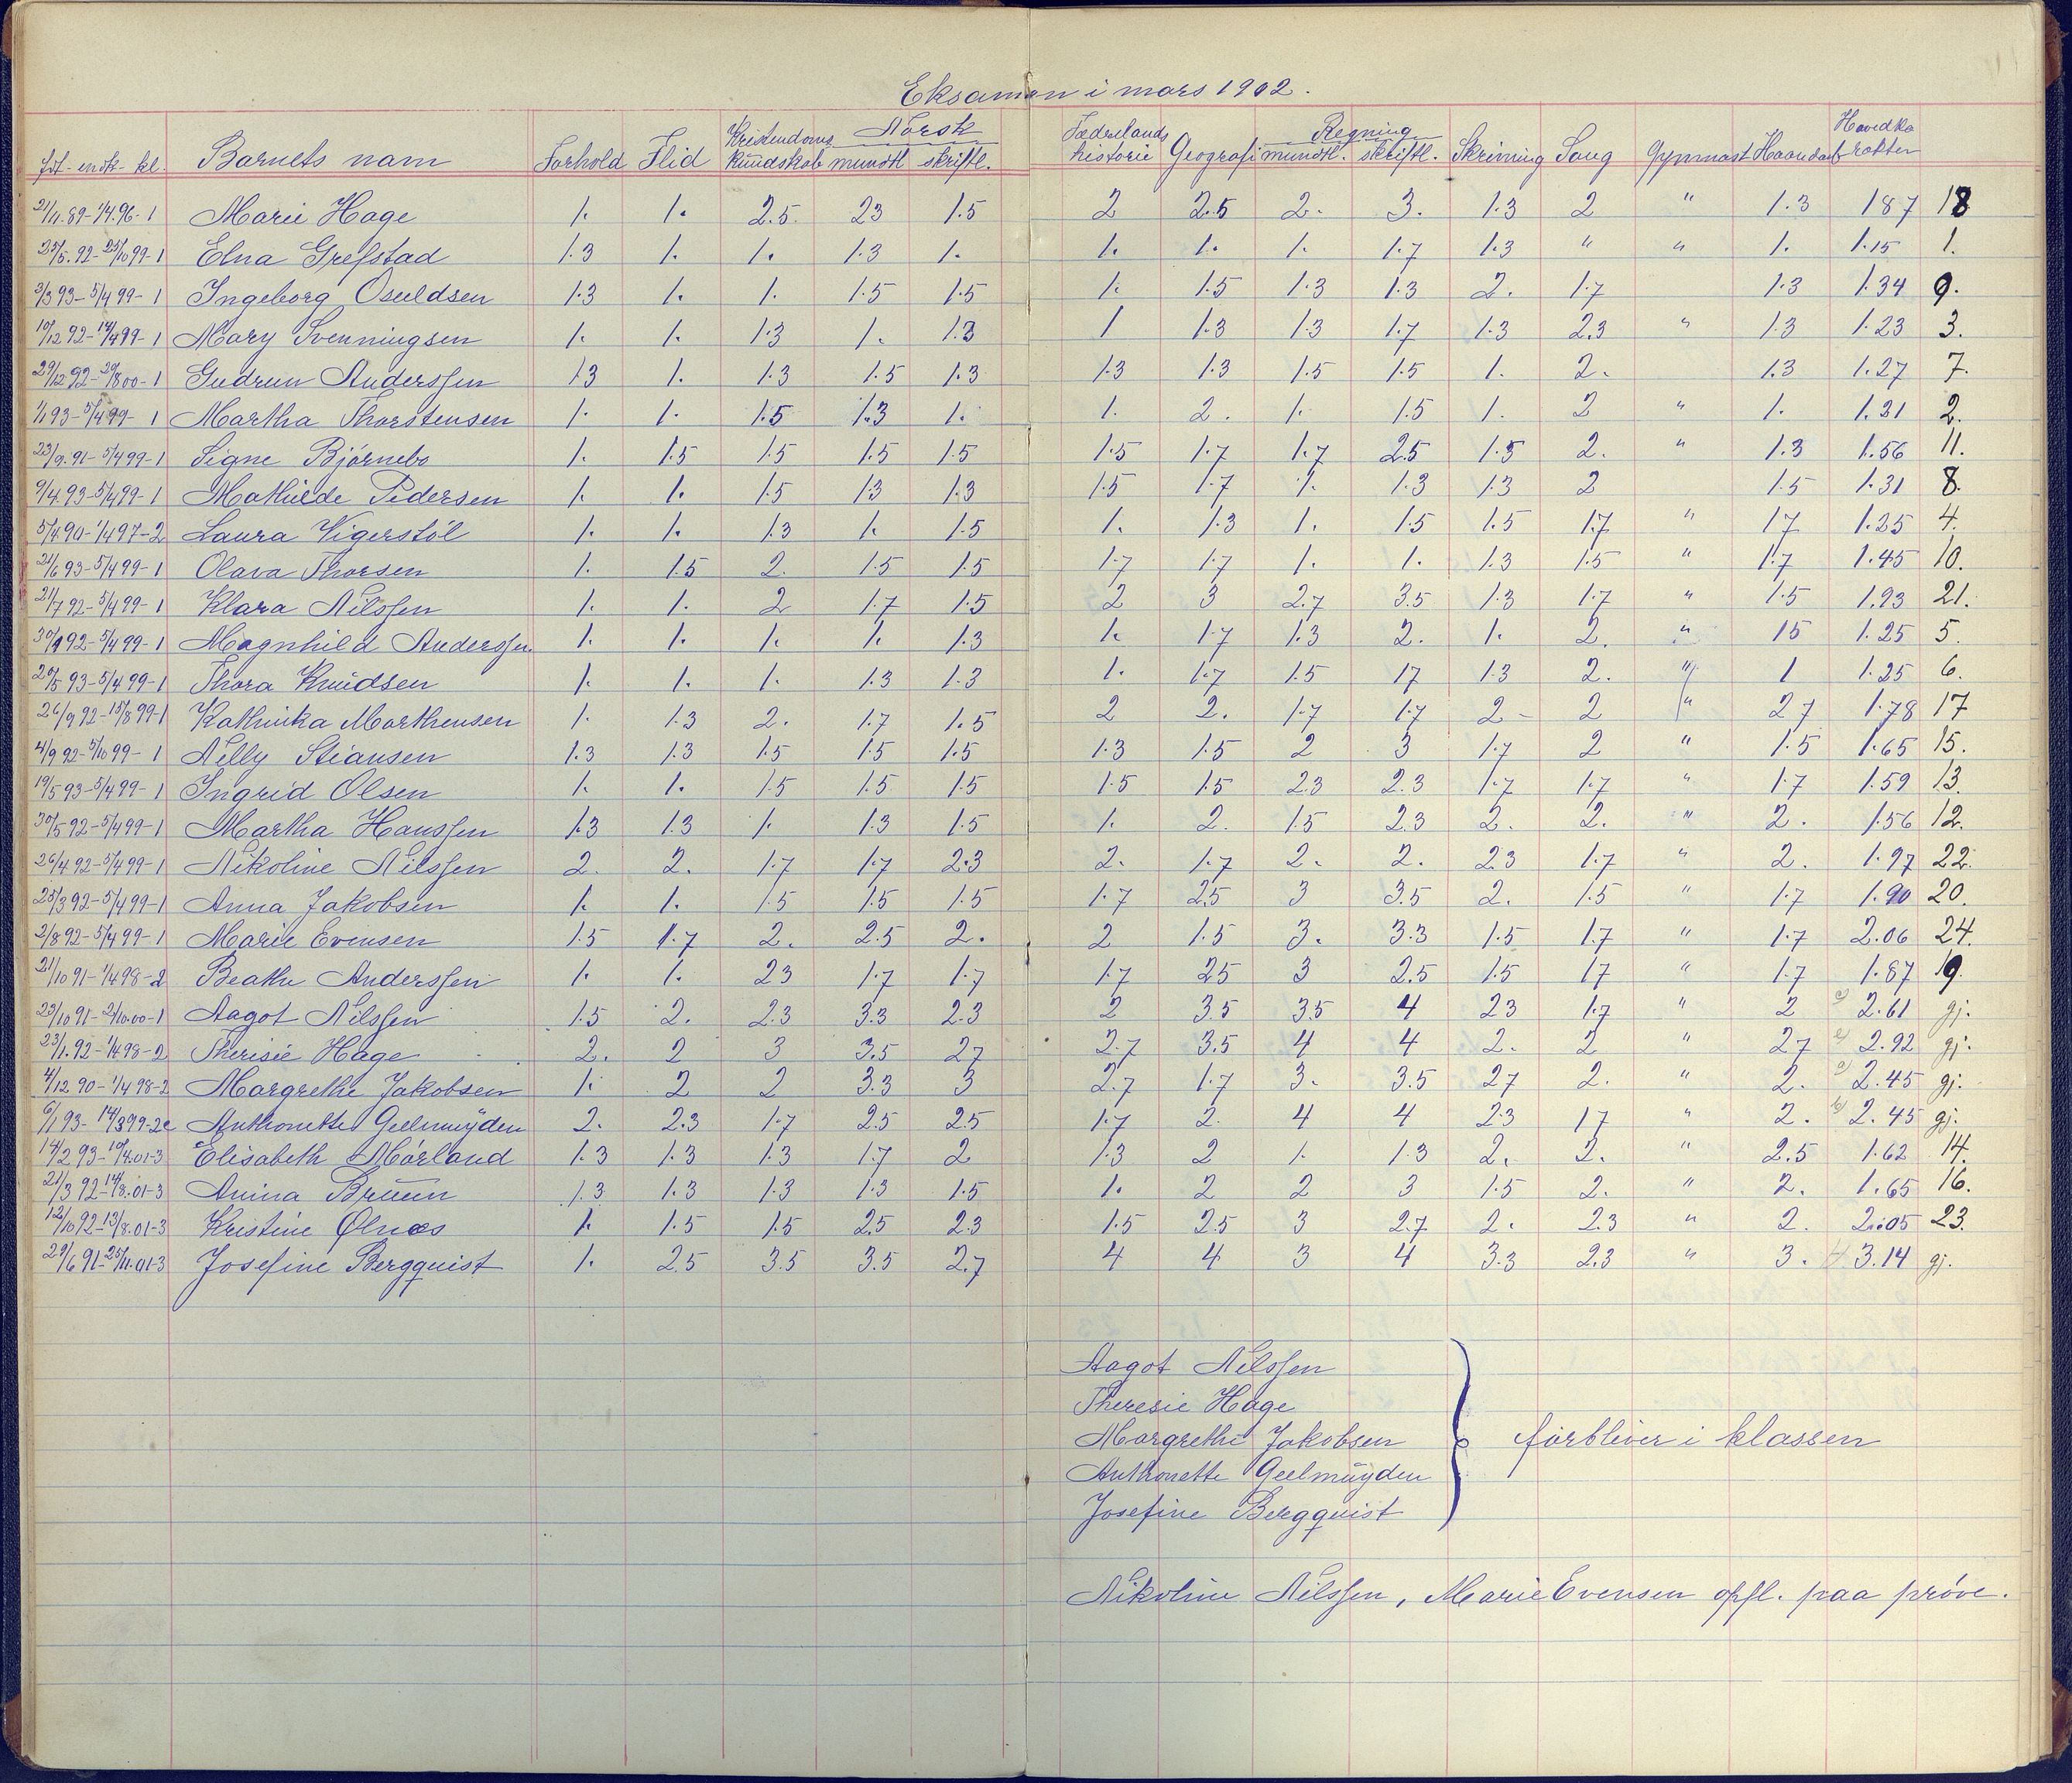 Eksamen i mars 1902.
fdt- indk- kl. Barnets navn Forhold Flid Kristendoms kundskab Norsk mundtl skriftl. Fædrelands historie Geografi Regning mundtl. skriftl. Skrivning Sang Gymnast Haandarb Hovedka rakter
21/11.89-1/4.96-1 Marie Hage 1. 1. 2.5. 23 1.5 2 2.5 2. 3. 1.3 2 " 1.3 187 18
25/5.92-25/10 99-1 Elna Grefstad 1.3 1. 1. 1.3 1. 1. 1. 1. 1.7 1.3 " " 1. 1.15 1.
3/3 93-5/4 99-1 Ingeborg Osuldsen 1.3 1. 1. 1.5 1.5 1. 1.5 1.3 1.3 2. 1.7 1.3 1.34 9.
10/12 92-14/4 99-1 Mary Svenningsen 1. 1. 1.3 1. 1.3 1 1.3 1.3 1.7 1.3 2.3 " 1.3 1.23 3.
29/12 92-20/8 00-1 Gudrun Anderssen 1.3 1. 1.3 1.5 1.3 1.3 1.3 1.5 1.5 1. 2. 1.3 1.27 7.
1/1 93-5/4 99-1 Martha Thorstensen 1. 1. 1.5 1.3 1. 1. 2. 1. 1.5 1. 2 " 1. 1.21 2.
23/9.91-5/4 99-1 Signe Bjørnebo 1. 1.5 1.5 1.5 1.5 1.5 1.7 1.7 2.5 1.5 2. " 1.3 1.56 11.
9/4.93-5/4 99-1 Mathilde Pedersen 1. 1. 1.5 1.3 1.3 1.5 1.7 1. 1.3 1.3 2 1.5 1.31 8.
5/4.90-1/4 97-2 Laura Vigerstöl 1. 1. 1.3 1. 1.5 1. 1.3 1. 1.5 1.5 1.7 " 1.7 1.25 4.
21/6 93-5/4 99-1 Olava Thorsen 1. 1.5 2. 1.5 1.5 1.7 1.7 1. 1. 1.3 1.5 " 1.7 1.45 10.
21/7 92-5/4 99-1 Klara Nilssen 1. 1. 2 1.7 1.5 2 3 2.7 3.5 1.3 1.7 " 1.5 1.93 21.
30/9 92-5/4 99-1 Magnhild Anderssen. 1. 1. 1. 1. 1.3 1. 1.7 1.3 2. 1. 2. " 15 1.25 5.
20/5 93-5/4 99-1 Thora Knudsen 1. 1. 1. 1.3 1.3 1. 1.7 1.5 17 1.3 2. " 1 1.25 6.
26/9 92-15/8 99-1 Kathinka Marthensen 1. 1.3 2. 1.7 1.5 2 2. 1.7 1.7 2- 2 " 2.7 1.78 17
4/9 92-5/10 99-1 Nelly Stiansen 1.3 1.3 1.5 1.5 1.5 1.3 1.5 2 3 1.7 2 " 1.5 1.65 15.
19/5 93-5/4 99-1 Ingrid Olsen 1. 1. 1.5 1.5 1.5 1.5 1.5 2.3 2.3 1.7 1.7 " 1.7 1.59 13.
30/5 92-5/4 99-1 Martha Hanssen 1.3 1.3 1. 1.3 1.5 1. 2. 1.5 2.3 2. 2. " 2. 1.56 12.
26/4 92-5/4 99-1 Nikoline Nilssen 2. 2. 1.7 1.7 2.3 2. 1.7 2. 2. 2.3 1.7 " 2. 1.97 22.
25/3 92-5/4 99-1 Anna Jakobsen 1. 1. 1.5 1.5 1.5 1.7 2.5 3 3.5 2. 1.5 " 1.7 1.90 20.
2/8 92-5/4 99-1 Marie Evensen 1.5 1.7 2. 2.5 2. 2 1.5 3. 3.3 1.5 1.7 " 1.7 2.06 24.
21/10 91-1/4 98-2 Beathe Anderssen 1. 1. 23 1.7 1.7 1.7 25 3 2.5 1.5 17 " 1.7 1.87 19.
23/10 91-2/10.00-1 Aagot Nilssen 1.5 2. 2.3 3.3 2.3 2 3.5 3.5 4 23 1.7 " 2 2.61 gj.
23/1.92-1/4 98-2 Therisie Hage 2. 2 3 3.5 27 2.7 3.5 4 4 2. 2 " 27 2.92 gj.
4/12 90-1/4 98-2 Margrethe Jakobsen 1. 2 2 3.3 3 2.7 1.7 3. 3.5 27 2. " 2. 2.45 gj.
6/1 93-14/3 99-2c Anthonette Geelmuÿden 2. 2.3 1.7 2.5 2.5 1.7 2. 4 4 2.3 17 " 2. 2.45 gj.
14/2 93-10/4.01-3 Elisabeth Mörland 1.3 1.3 1.3 1.7 2 1.3 2 1. 1.3 2. 2. " 2.5 1.62 14.
21/3 92-14/8.01-3 Anina Bruun 1.3 1.3 1.3 1.3 1.5 1. 2 2 3 1.5 2. " 2. 1.65 16.
12/10 92-13/8.01-3 Kristine Ølnes 1. 1.5 1.5 2.5 2.3 1.5 2.5 3 2.7 2. 2.3 " 2. 2.05 23.
29/6 91-25/11.01-3 Josefine Bergquist 1. 2.5 3.5 3.5 2.7 4 4 3 4 3.3 2.3 " 3. 3.14 gj.
Aagot Nilssen
Theresie Hage
Margrethe Jakobsen forbliver i klassen
Anthonette Geelmuÿden
Josefine Bergquist
Nikoline Nilssen, Marie Evensen opfl. paa prøve.